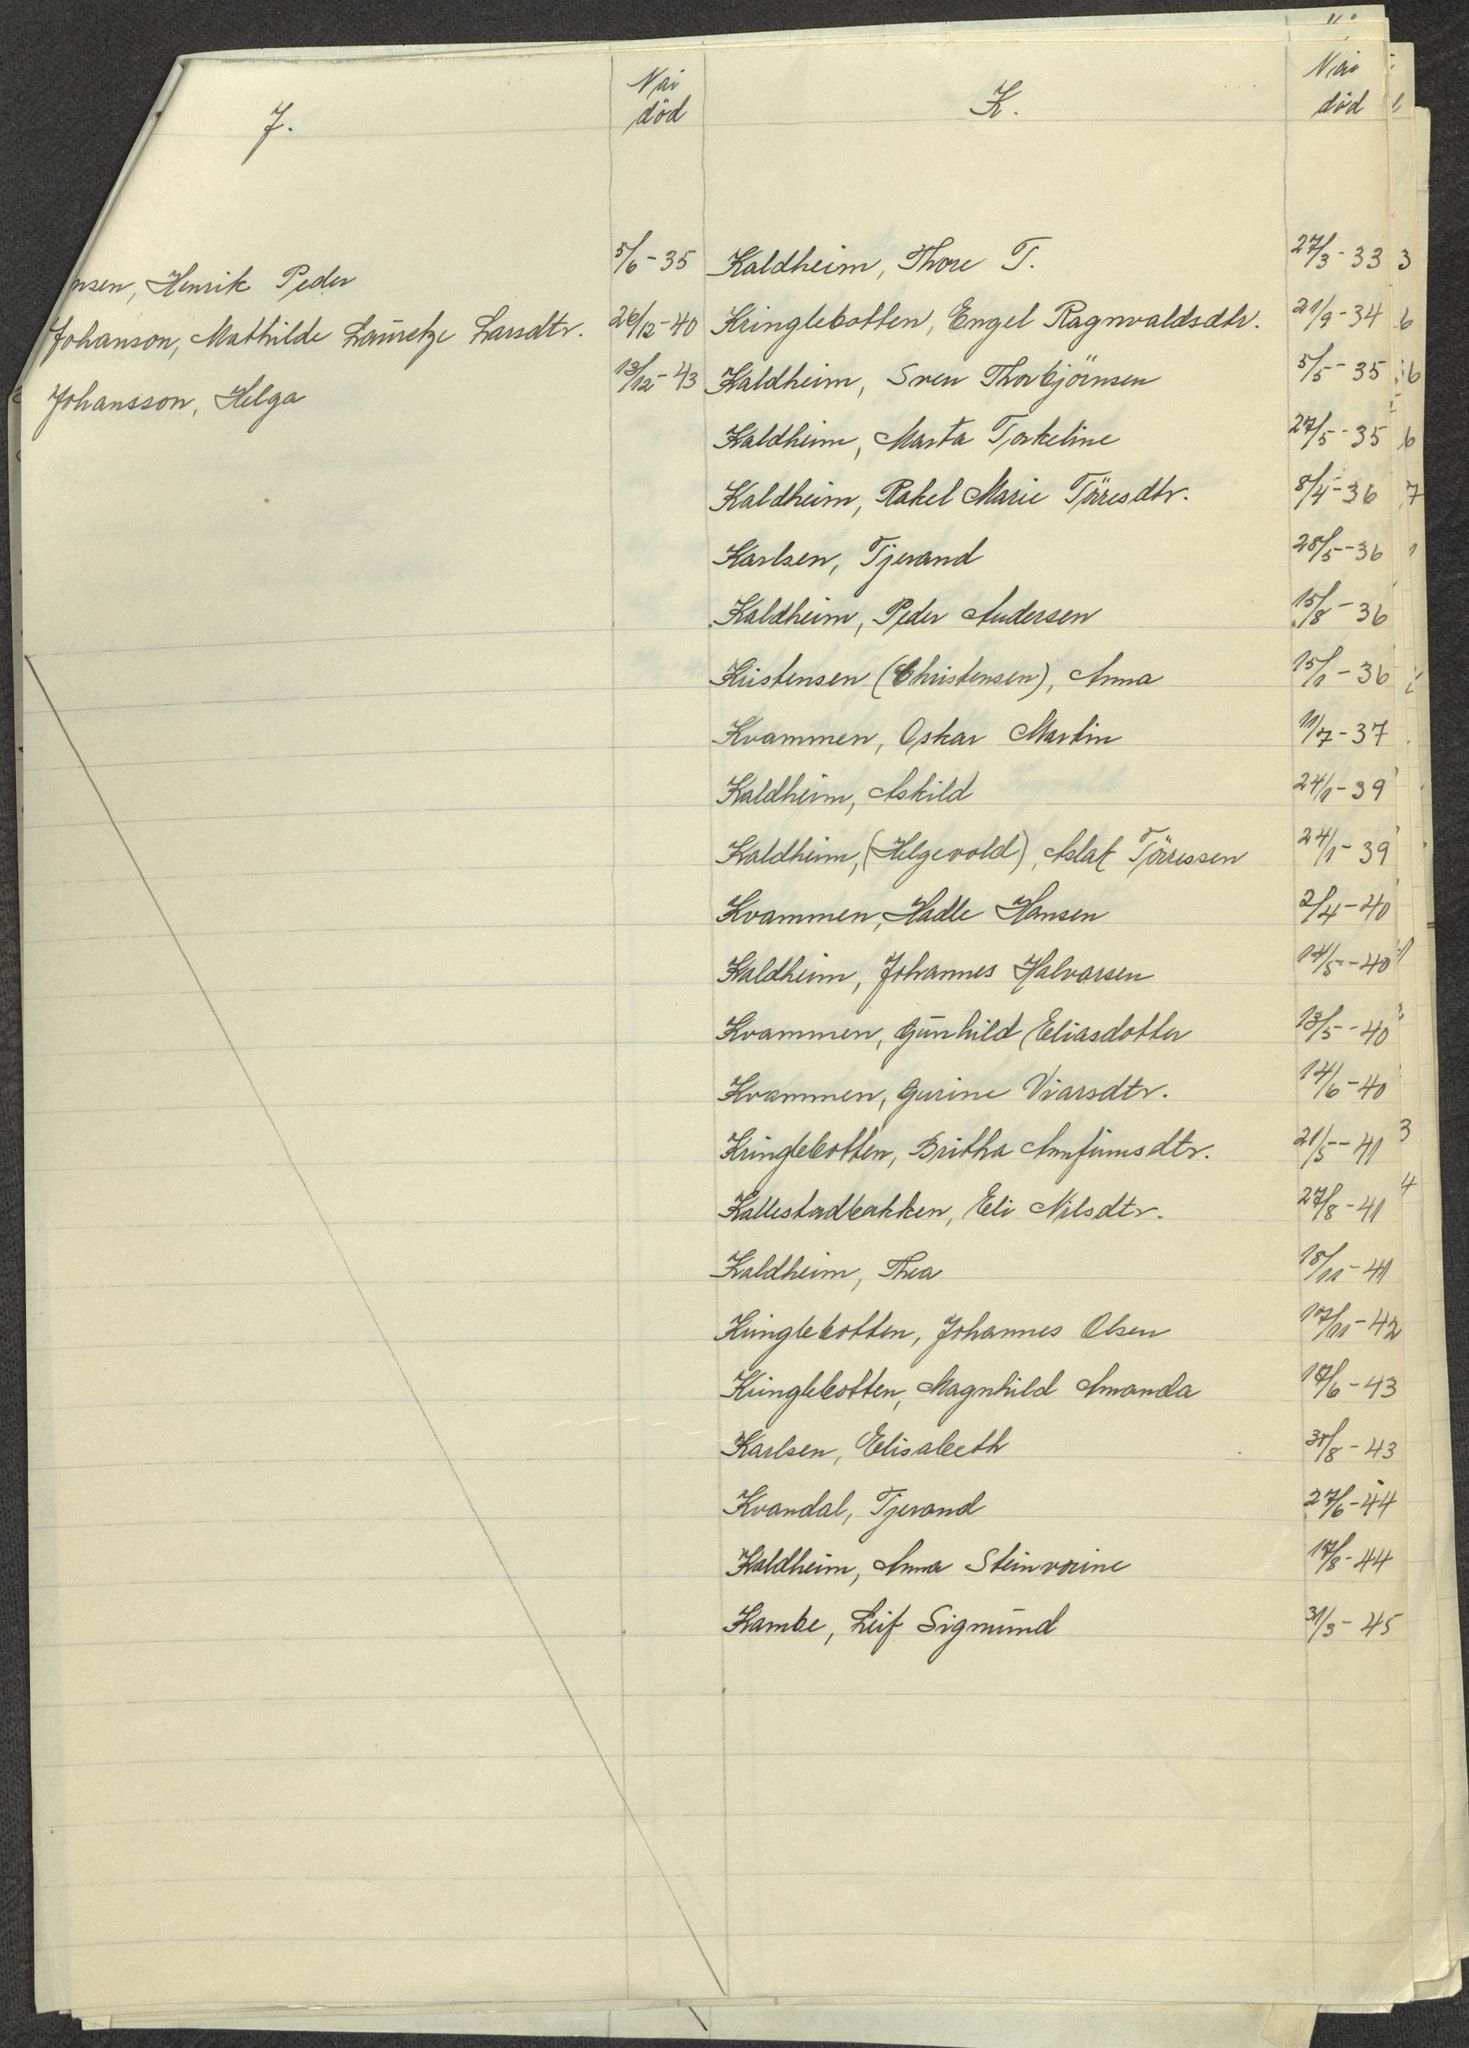 J.
Nai död
K.
Nai död
nsen, Henrik Peder 5/6-35
Johanson, Mathilde Lauretze Larsdtr. 26/12-40
Johansson, Helga 13/12-43
Kaldheim, Thore T. 27/3-33
Kringlebotten, Engel Ragnvaldsdtr. 21/9-34
Kaldheim, Sven Thorbjörnsen 5/5-35
Kaldheim, Marta Torkeline 27/5-35
Kaldheim, Rakel Marie Törresdtr. 8/4-36
Karlsen, Tjerand 28/5-36
Kaldheim, Peder Andersen 15/8-36
Kristensen (Christensen), Anna 15/1-36
Kvammen, Oskar Martin 11/7-37
Kaldheim, Askild 24/1-39
Kaldheim, (Helgevold), Aslak Törressen 24/1-39
Kvammen, Hadle Hansen 2/4-40
Kaldheim, Johannes Halvarsen 14/5-40
Kvammen, Gunhild Eliasdotter 13/5-40
Kvammen, Gurine Viarsdtr. 14/6-40
Kringlebotten, Britha Arnfinnsdtr. 21/5-41
Kallestadbakken, Eli Nilsdtr. 27/8-41
Kaldheim, Thea 18/11-41
Kringlebotten, Johannes Olsen 17/11-42
Kringlebotten, Magnhild Amanda /6-43
Karlsen, Elisabeth /8-43
Kvandal, Tjerand 27/6-44
Kaldheim, Anna Steinvorine 17/8-44
Kambe, Leif Sigmund 31/3-45